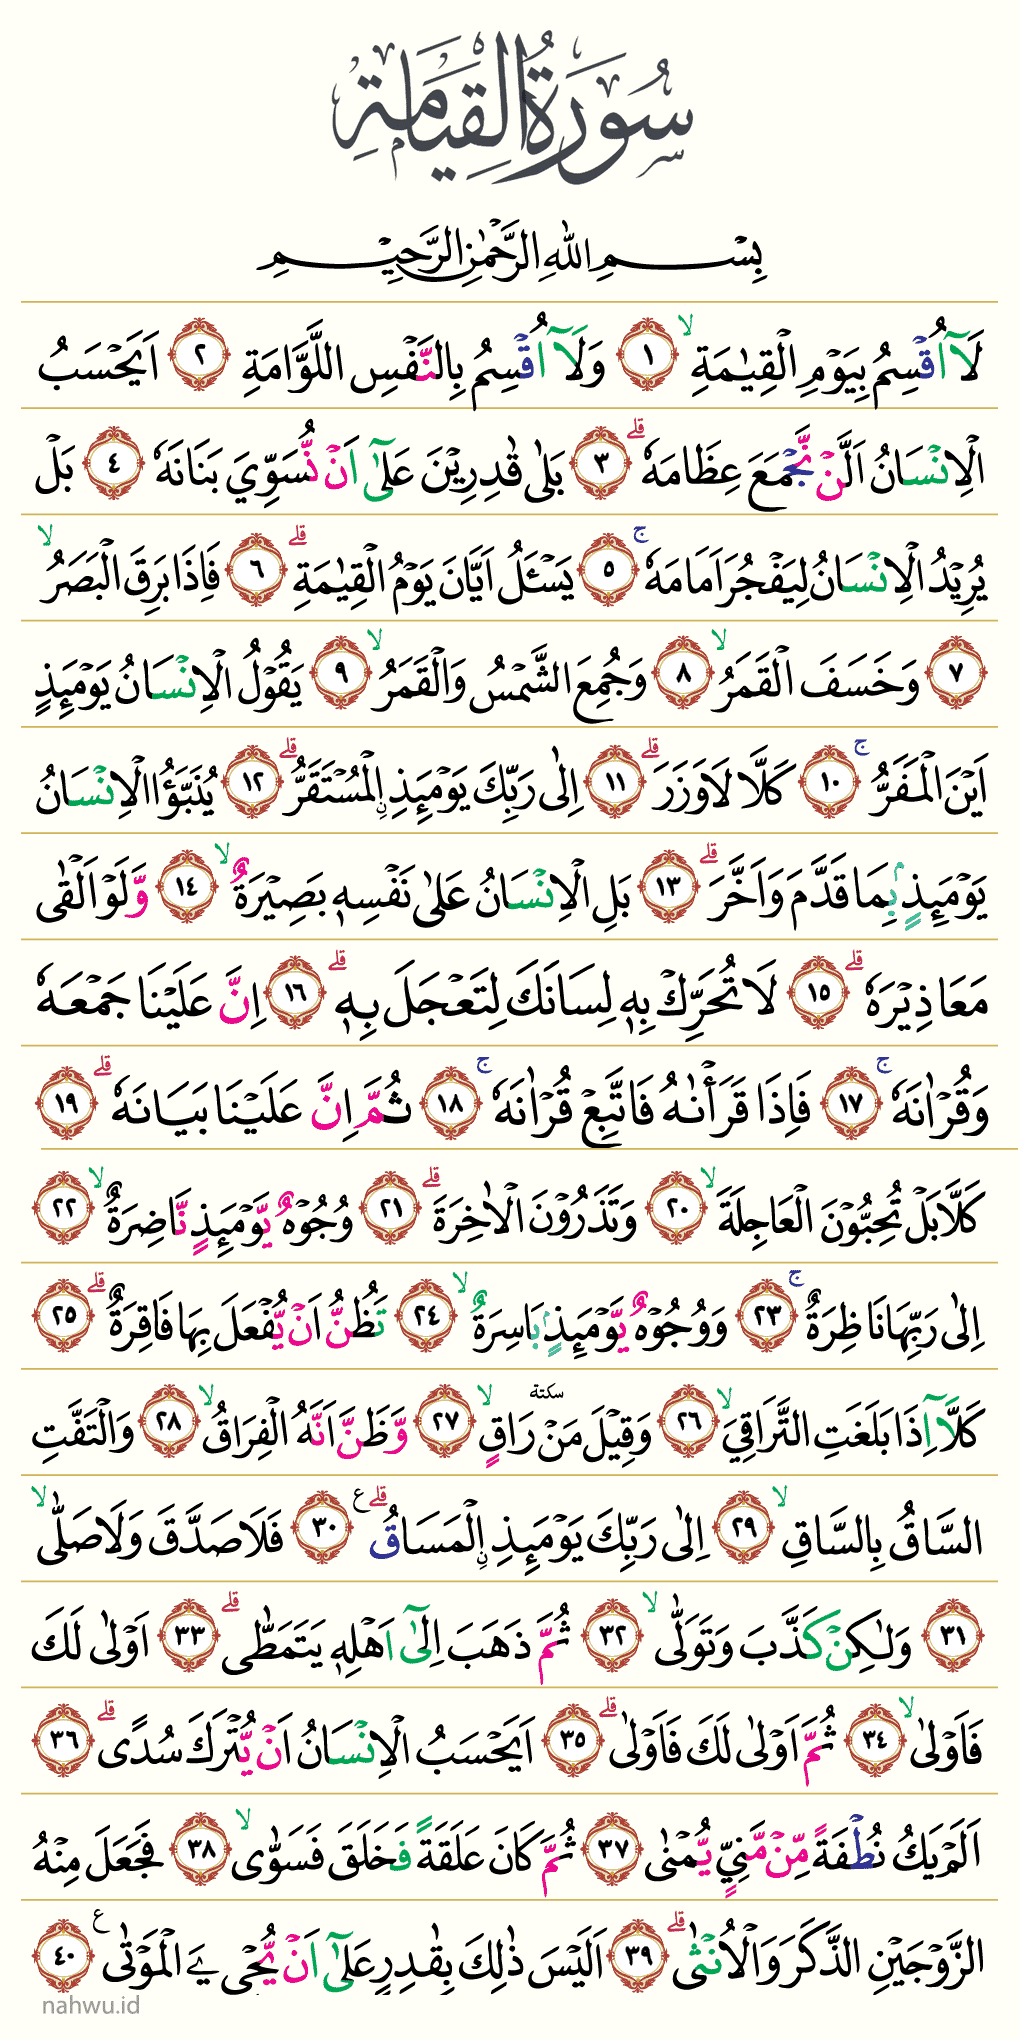 سُورَةُ الْقِيَامَةِ
بِسْمِ اللّٰهِ الرَّحْمٰنِ الرَّحِيْمِ
لَآ اُقْسِمُ بِيَوْمِ الْقِيٰمَةِۙ ١ وَلَآ اُقْسِمُ بِالنَّفْسِ اللَّوَّامَةِ ٢ اَيَحْسَبُ
الْاِنْسَانُ اَلَّنْ نَّجْمَعَ عِظَامَهٗۗ ٣ بَلٰى قٰدِرِيْنَ عَلٰٓى اَنْ نُّسَوِّيَ بَنَانَهٗ ٤ بَلْ
يُرِيْدُ الْاِنْسَانُ لِيَفْجُرَ اَمَامَهٗۚ ٥ يَسْـَٔلُ اَيَّانَ يَوْمُ الْقِيٰمَةِۗ ٦ فَاِذَا بَرِقَ الْبَصَرُۙ
٧ وَخَسَفَ الْقَمَرُۙ ٨ وَجُمِعَ الشَّمْسُ وَالْقَمَرُۙ ٩ يَقُوْلُ الْاِنْسَانُ يَوْمَىِٕذٍ
اَيْنَ الْمَفَرُّۚ ١٠ كَلَّا لَا وَزَرَۗ ١١ اِلٰى رَبِّكَ يَوْمَىِٕذِ ِۨالْمُسْتَقَرُّۗ ١٢ يُنَبَّؤُا الْاِنْسَانُ
يَوْمَىِٕذٍۢ بِمَا قَدَّمَ وَاَخَّرَۗ ١٣ بَلِ الْاِنْسَانُ عَلٰى نَفْسِهٖ بَصِيْرَةٌۙ ١٤ وَّلَوْ اَلْقٰى
مَعَاذِيْرَهٗۗ ١٥ لَا تُحَرِّكْ بِهٖ لِسَانَكَ لِتَعْجَلَ بِهٖۗ ١٦ اِنَّ عَلَيْنَا جَمْعَهٗ
وَقُرْاٰنَهٗۚ ١٧ فَاِذَا قَرَأْنٰهُ فَاتَّبِعْ قُرْاٰنَهٗۚ ١٨ ثُمَّ اِنَّ عَلَيْنَا بَيَانَهٗۗ ١٩
كَلَّا بَلْ تُحِبُّوْنَ الْعَاجِلَةَۙ ٢٠ وَتَذَرُوْنَ الْاٰخِرَةَۗ ٢١ وُجُوْهٌ يَّوْمَىِٕذٍ نَّاضِرَةٌۙ ٢٢
اِلٰى رَبِّهَا نَاظِرَةٌۚ ٢٣ وَوُجُوْهٌ يَّوْمَىِٕذٍۢ بَاسِرَةٌۙ ٢٤ تَظُنُّ اَنْ يُّفْعَلَ بِهَا فَاقِرَةٌۗ ٢٥
كَلَّآ اِذَا بَلَغَتِ التَّرَاقِيَۙ ٢٦ وَقِيْلَ مَنْ سكتة رَاقٍۙ ٢٧ وَّظَنَّ اَنَّهُ الْفِرَاقُۙ ٢٨ وَالْتَفَّتِ
السَّاقُ بِالسَّاقِۙ ٢٩ اِلٰى رَبِّكَ يَوْمَىِٕذِ ِۨالْمَسَاقُۗ ع ٣٠ فَلَا صَدَّقَ وَلَا صَلّٰىۙ
٣١ وَلٰكِنْ كَذَّبَ وَتَوَلّٰىۙ ٣٢ ثُمَّ ذَهَبَ اِلٰٓى اَهْلِهٖ يَتَمَطّٰىۗ ٣٣ اَوْلٰى لَكَ
فَاَوْلٰىۙ ٣٤ ثُمَّ اَوْلٰى لَكَ فَاَوْلٰىۗ ٣٥ اَيَحْسَبُ الْاِنْسَانُ اَنْ يُّتْرَكَ سُدًىۗ ٣٦
اَلَمْ يَكُ نُطْفَةً مِّنْ مَّنِيٍّ يُّمْنٰى ٣٧ ثُمَّ كَانَ عَلَقَةً فَخَلَقَ فَسَوّٰىۙ ٣٨ فَجَعَلَ مِنْهُ
الزَّوْجَيْنِ الذَّكَرَ وَالْاُنْثٰىۗ ٣٩ اَلَيْسَ ذٰلِكَ بِقٰدِرٍ عَلٰٓى اَنْ يُّحْيِ يَ الْمَوْتٰى ع ٤٠
nahwu.id